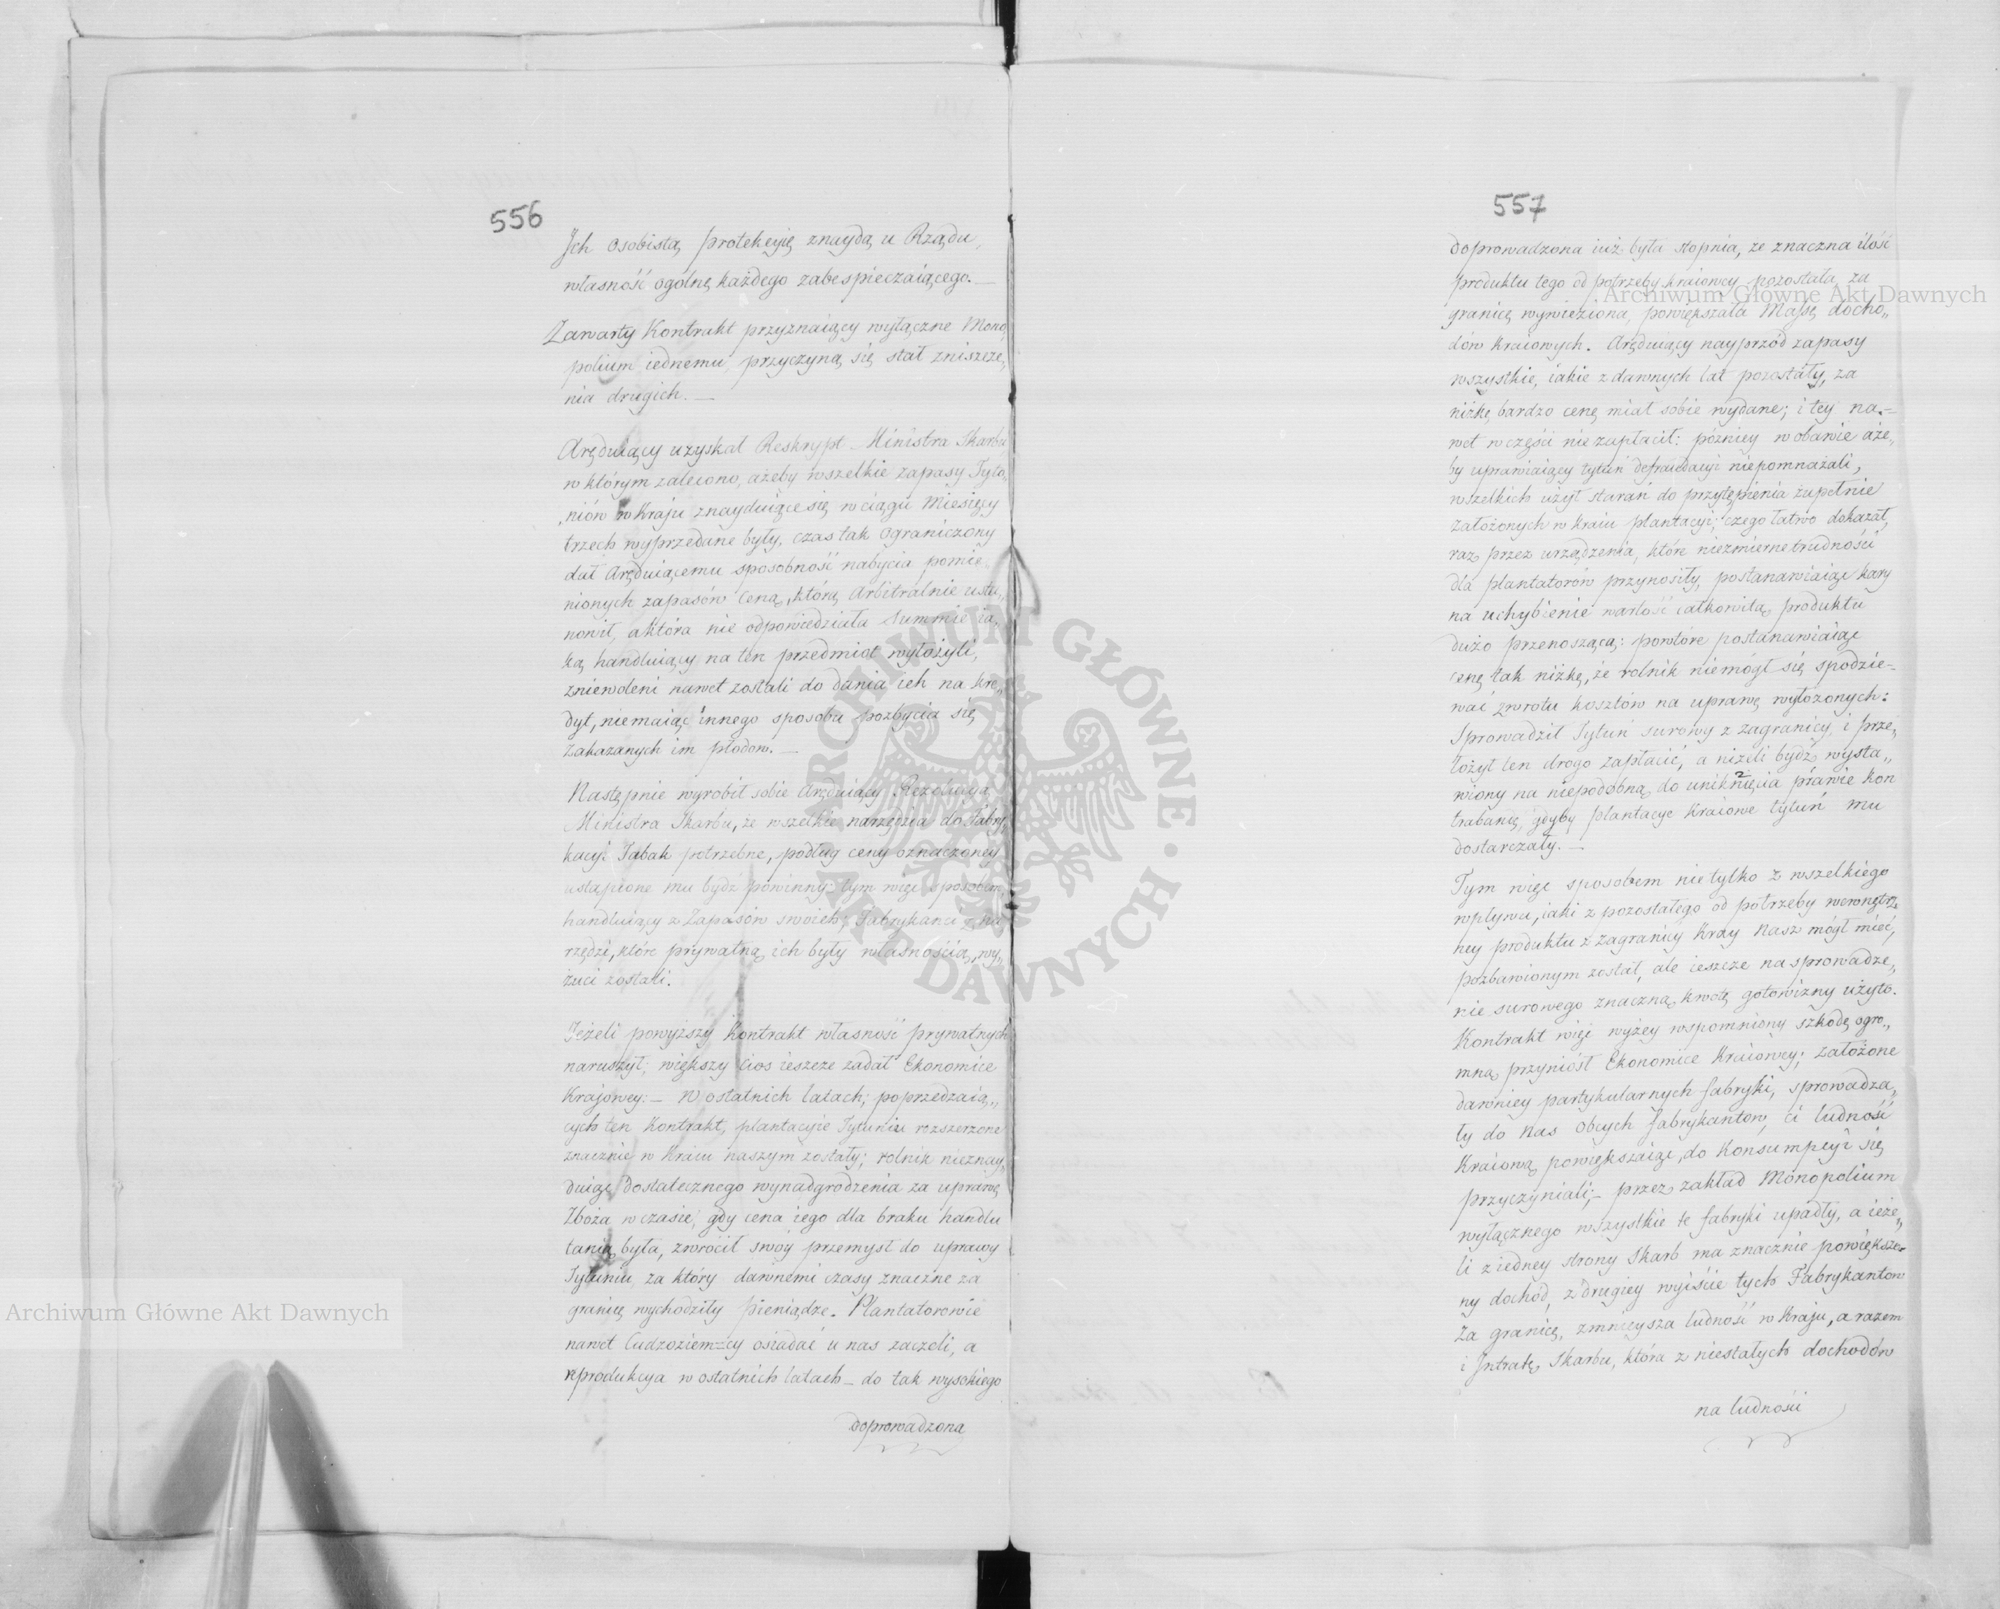 556
Jch osobistą protekcyię znaydą u Rządu,
własność ogólnę każdego zabespieczaiącego. —
Zawarty Kontrakt przyznaiący wyłączne Mono„
polium iednemu, przyczyną się stał zniszcze„
nia drugich. —
Aręduiący uzyskał Reskrypt Ministra Skarbu
w którym zalecono, ażeby wszelkie zapasy Tyto„
niów w Kraju znayduiące się w ciągu Miesięcy
trzech wyprzedane były. czas tak ograniczony
dał Aręduiącemu sposobność nabycia pomie„
nionych zapasów ceną, którą Arbitralnie usta„
nowił, a która nie odpowiedziała Summie ia„
ką handluiący na ten przedmiot wyłożyli,
zniewoleni nawet zostali do dania ich na kre„
dyt, niemaiąc innego sposobu pozbycia się
zakazanych im płodow. —
Następnie wyrobił sobie Aręduiący Rezolucyą
Ministra Skarbu, że wszelkie narzędzia do fabry„
kacyi Tabak potrzebne, podług ceny oznaczoney
ustąpione mu bydź powinny: tym więc sposobem
handluiący z Zapasów swoich, Fabrykanci z na„
rzędzi, które prywatną ich były własnością, wy„
zuci zostali.
Jeżeli powyższy Kontrakt własność prywatnych
naruszył; większy cios ieszcze zadał Ekonomice
Krajowey: — W ostatnich latach; poprzedzaią„
cych ten Kontrakt, plantacyie Tytuniu rozszerzone
znacznie w Kraiu naszym zostały; rolnik nieznay„
duiąc dostatecznego wynadgrodzenia za uprawę
Zboża w czasie, gdy cena iego dla braku handlu
tanią była, zwrócił swóy przemysł do uprawy
Tytuniu, za który dawnemi czasy znaczne za
granicę wychodziły pieniądze. Plantatorowie
nawet Cudzoziemcy osiadać u nas zaczeli, a
produkcya w ostatnich latach — do tak wysokiego
doprowadzona
557
doprowadzona iuż była stopnia, że znaczna ilość
produktu tego od potrzeby kraiowey pozostała, za
granicę wywieziona, powiększała Massę docho„
dów kraiowych. Aręduiący nayprzód zapasy
wszystkie, iakie z dawnych lat pozostały, za
nizką bardzo cenę miał sobie wydane; i tey na„
wet w części nie zapłacił: pózniey w obawie aże„
by uprawiaiący tytuń defraudacyi niepomnażali,
wszelkich użył starań do przytępienia zupełnie
założonych w kraiu plantacyi; czego łatwo dokazał,
raz przez urządzenia, które niezmierne trudności
dla plantatorów przynosiły, postanawiaiąc kary
na uchybienie wartość całkowitą produktu
dużo przenoszącą: powtóre postanawiaiąc
cenę tak nizkę, że rolnik niemógł się spodzie-
wać zwrotu kosztów na uprawę wyłożonych:
Sprowadził Tytuń surowy z zagranicy, i prze„
łożył ten drogo zapłacić, a niżeli bydź wysta„
wiony na niepodobną do uniknięcia prawie kon
trabandę, gdyby plantacye Kraiowe tytuń mu
dostarczały. —
Tym więc sposobem nie tylko z wszelkiego
wpływu, iaki z pozostałego od potrzeby wewnętrz„
ney produktu z zagranicy Kray Nasz mógł mieć,
pozbawionym został, ale ieszcze na sprowadze„
nie surowego znaczną kwotę gotowizny użyto.
Kontrakt więc wyżey wspomniony szkodę ogro„
mną przyniósł Ekonomice Kraiowey; założone
dawniey partykularnych fabryki, sprowadza„
ły do nas obcych fabrykantow, ci ludność
Kraiową powiększaiąc, do Konsumpcyi się
przyczyniali; — przez zakład Monopolium
wyłącznego wszystkie te fabryki upadły, a ieże„
li z iedney strony Skarb ma znacznie powiększo„
ny dochód, z drugiey wyiście tych Fabrykantow
za granicę, zmnieysza ludność w Kraju, a razem
i Jntratę Skarbu, która z niestałych dochodów
na ludności
Archiwum Główne Akt Dawnych
Archiwum Główne Akt Dawnych
ARCHIWUM GŁÓWNE · AKT DAWNYCH ·